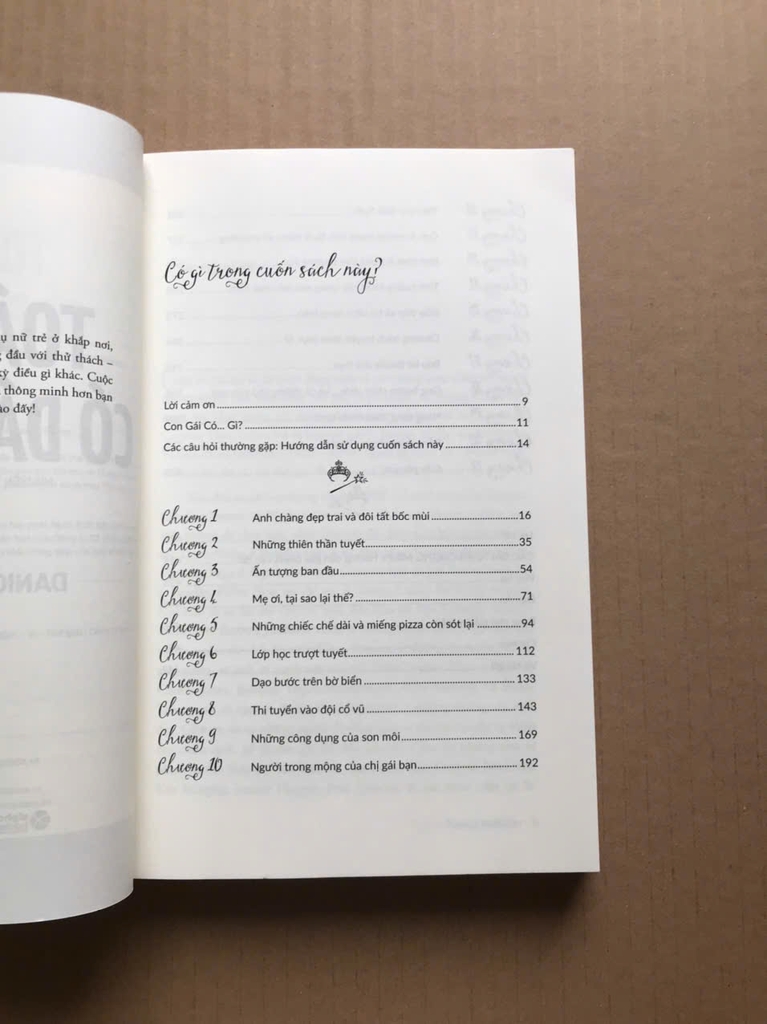 ụ nữ trẻ ở khắp nơi,
đầu với thử thách –
kỳ điều gì khác. Cuộc
thông minh hơn bạn
ào đấy!
Có gì trong cuốn sách này?
Lời cảm ơn 9
Con Gái Có... Gì? 11
Các câu hỏi thường gặp: Hướng dẫn sử dụng cuốn sách này 14
Chương 1 Anh chàng đẹp trai và đôi tất bốc mùi 16
Chương 2 Những thiên thần tuyết 35
Chương 3 Ấn tượng ban đầu 54
Chương 4 Mẹ ơi, tại sao lại thế? 71
Chương 5 Những chiếc chế dài và miếng pizza còn sót lại 94
Chương 6 Lớp học trượt tuyết 112
Chương 7 Dạo bước trên bờ biển 133
Chương 8 Thi tuyển vào đội cổ vũ 143
Chương 9 Những công dụng của son môi 169
Chương 10 Người trong mộng của chị gái bạn 192